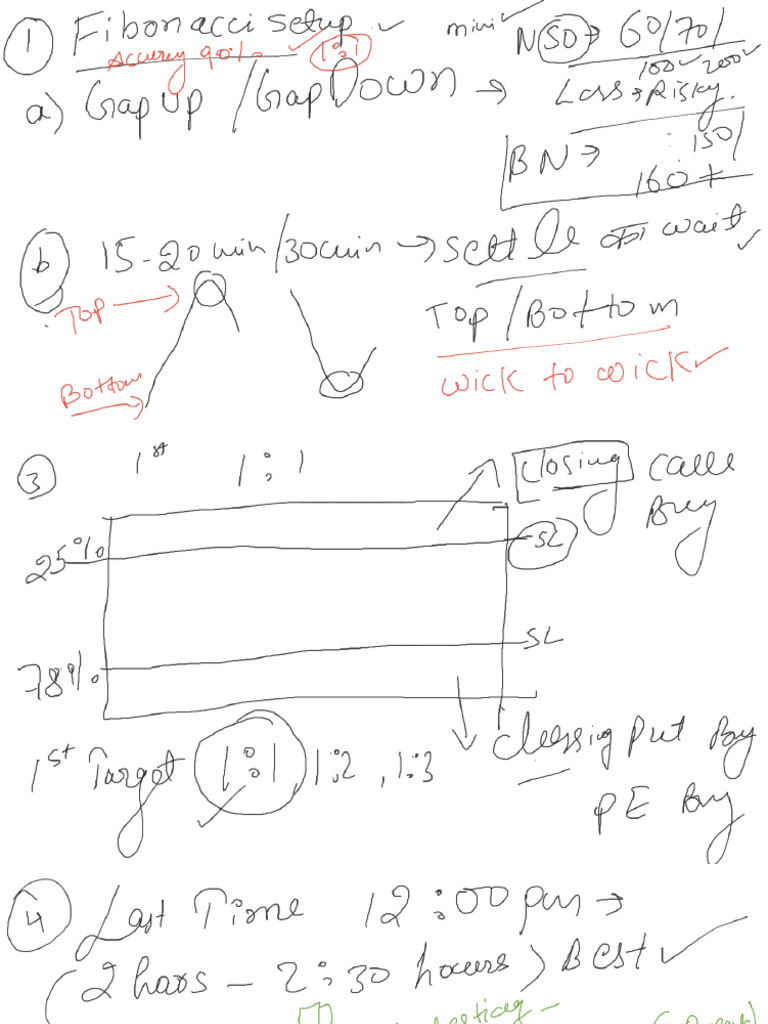 ① Fibonacci setup ✓
Accuracy 90% ✓ 1:1
mini ✓ N 50 → 60/70/
100✓ 200✓
a) Gap up / Gap Down → Less → Risky.
BN → : 150/
160+
b 15-20 min/30min → settle wait ✓
Top → Top/Bottom
Bottom → wick to wick ✓
③ 1st 1:1 closing Calle Buy
25% SL
78% SL
1st Target 1:1 ✓ 1:2, 1:3 Clossing Put Buy
PE Buy
④ Last Time 12:00 pm →
(2 hars - 2:30 hours) Best ✓